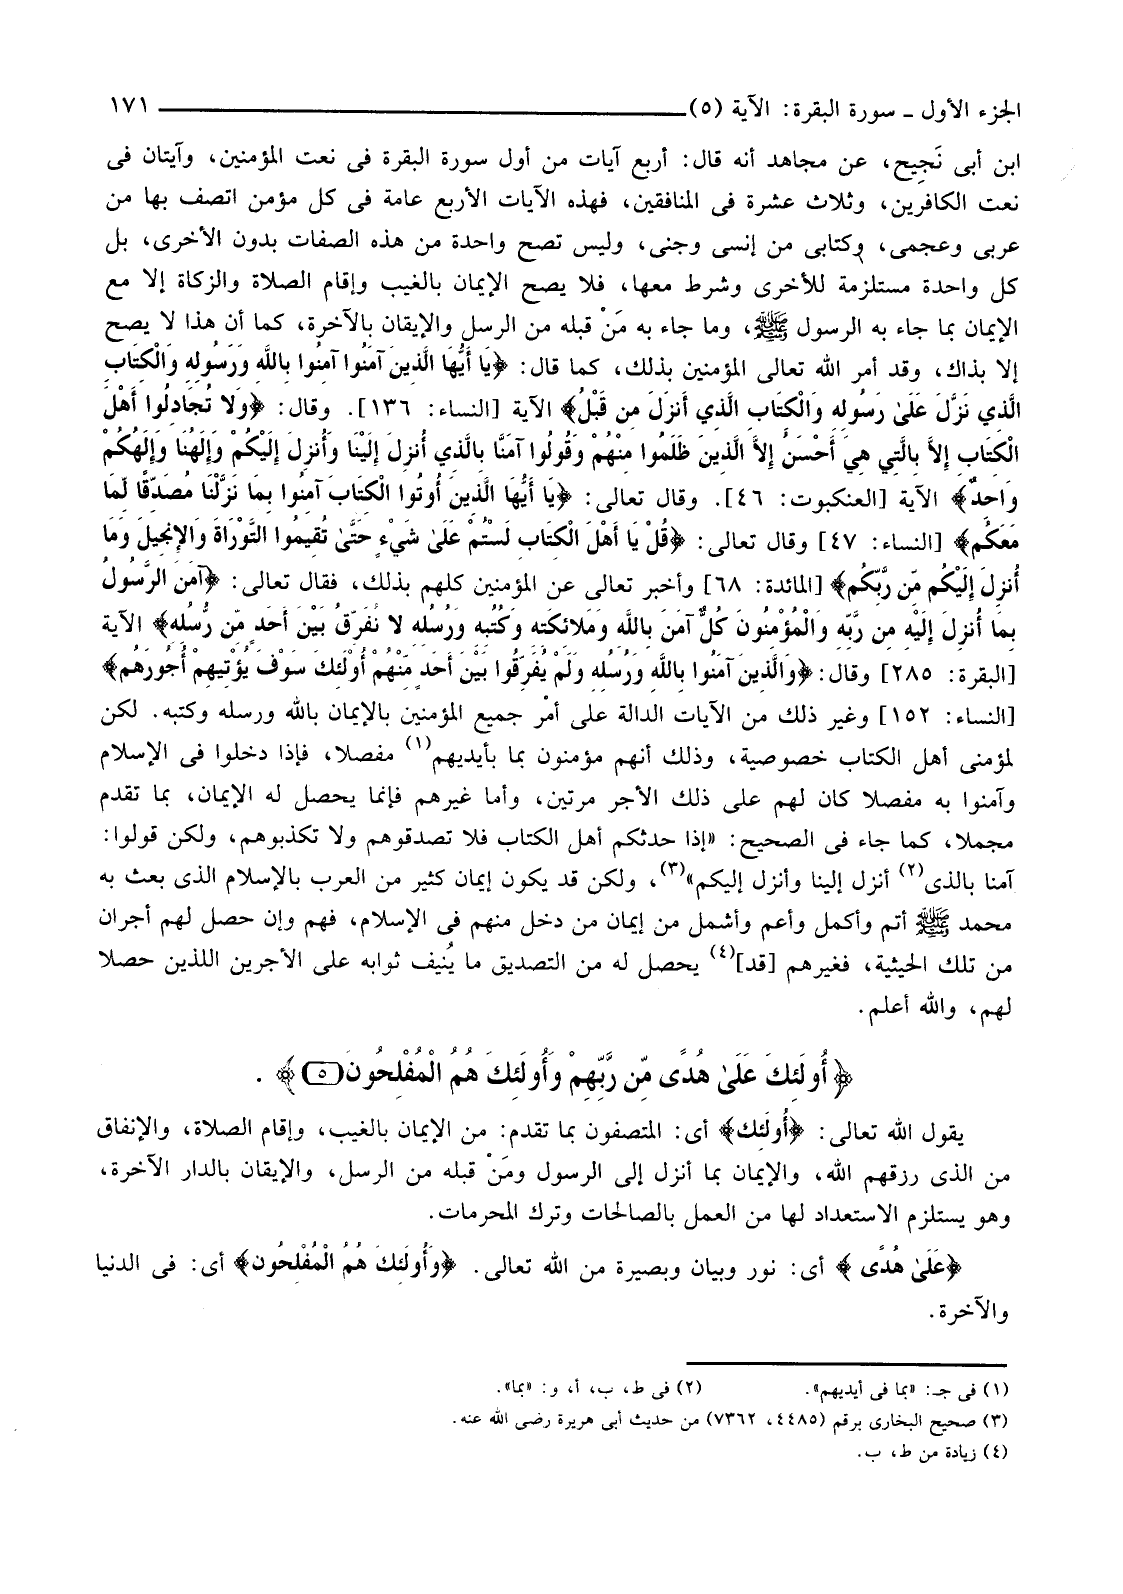 الجزء الأول ـ سورة البقرة: الآية (٥) ١٧١
ابن أبى نَجِيح، عن مجاهد أنه قال: أربع آيات من أول سورة البقرة فى نعت المؤمنين، وآيتان فى
نعت الكافرين، وثلاث عشرة فى المنافقين، فهذه الآيات الأربع عامة فى كل مؤمن اتصف بها من
عربى وعجمى، وكتابى من إنسى وجنى، وليس تصح واحدة من هذه الصفات بدون الأخرى، بل
كل واحدة مستلزمة للأخرى وشرط معها، فلا يصح الإيمان بالغيب وإقام الصلاة والزكاة إلا مع
الإيمان بما جاء به الرسول ﷺ، وما جاء به مَنْ قبله من الرسل والإيقان بالآخرة، كما أن هذا لا يصح
إلا بذاك، وقد أمر الله تعالى المؤمنين بذلك، كما قال: ﴿يَا أَيُّهَا الَّذِينَ آمَنُوا آمِنُوا بِاللَّهِ وَرَسُولِهِ وَالْكِتَابِ
الَّذِي نَزَّلَ عَلَىٰ رَسُولِهِ وَالْكِتَابِ الَّذِي أَنزَلَ مِن قَبْلُ﴾ الآية [النساء: ١٣٦]. وقال: ﴿وَلا تُجَادِلُوا أَهْلَ
الْكِتَابِ إِلاَّ بِالَّتِي هِيَ أَحْسَنُ إِلاَّ الَّذِينَ ظَلَمُوا مِنْهُمْ وَقُولُوا آمَنَّا بِالَّذِي أُنزِلَ إِلَيْنَا وَأُنزِلَ إِلَيْكُمْ وَإِلَهُنَا وَإِلَهُكُمْ
وَاحِدٌ﴾ الآية [العنكبوت: ٤٦]. وقال تعالى: ﴿يَا أَيُّهَا الَّذِينَ أُوتُوا الْكِتَابَ آمِنُوا بِمَا نَزَّلْنَا مُصَدِّقًا لِّمَا
مَعَكُم﴾ [النساء: ٤٧] وقال تعالى: ﴿قُلْ يَا أَهْلَ الْكِتَابِ لَسْتُمْ عَلَىٰ شَيْءٍ حَتَّىٰ تُقِيمُوا التَّوْرَاةَ وَالإِنجِيلَ وَمَا
أُنزِلَ إِلَيْكُم مِّن رَّبِّكُم﴾ [المائدة: ٦٨] وأخبر تعالى عن المؤمنين كلهم بذلك، فقال تعالى: ﴿آمَنَ الرَّسُولُ
بِمَا أُنزِلَ إِلَيْهِ مِن رَّبِّهِ وَالْمُؤْمِنُونَ كُلٌّ آمَنَ بِاللَّهِ وَمَلائِكَتِهِ وَكُتُبِهِ وَرُسُلِهِ لا نُفَرِّقُ بَيْنَ أَحَدٍ مِّن رُّسُلِه﴾ الآية
[البقرة: ٢٨٥] وقال: ﴿وَالَّذِينَ آمَنُوا بِاللَّهِ وَرُسُلِهِ وَلَمْ يُفَرِّقُوا بَيْنَ أَحَدٍ مِّنْهُمْ أُوْلَئِكَ سَوْفَ يُؤْتِيهِمْ أُجُورَهُم﴾
[النساء: ١٥٢] وغير ذلك من الآيات الدالة على أمْر جميع المؤمنين بالإيمان بالله ورسله وكتبه. لكن
لمؤمنى أهل الكتاب خصوصية، وذلك أنهم مؤمنون بما بأيديهم(١) مفصلا، فإذا دخلوا فى الإسلام
وآمنوا به مفصلا كان لهم على ذلك الأجر مرتين، وأما غيرهم فإنما يحصل له الإيمان، بما تقدم
مجملا، كما جاء فى الصحيح: «إذا حدثكم أهل الكتاب فلا تصدقوهم ولا تكذبوهم، ولكن قولوا:
آمنا بالذى(٢) أنزل إلينا وأنزل إليكم»(٣)، ولكن قد يكون إيمان كثير من العرب بالإسلام الذى بعث به
محمد ﷺ أتم وأكمل وأعم وأشمل من إيمان من دخل منهم فى الإسلام، فهم وإن حصل لهم أجران
من تلك الحيثية، فغيرهم [قد](٤) يحصل له من التصديق ما يُنيف ثوابه على الأجرين اللذين حصلا
لهم، والله أعلم.
﴿أُولَئِكَ عَلَىٰ هُدًى مِّن رَّبِّهِمْ وَأُولَئِكَ هُمُ الْمُفْلِحُونَ (٥)﴾ .
يقول الله تعالى: ﴿أُولَئِك﴾ أى: المتصفون بما تقدم: من الإيمان بالغيب، وإقام الصلاة، والإنفاق
من الذى رزقهم الله، والإيمان بما أنزل إلى الرسول ومَنْ قبله من الرسل، والإيقان بالدار الآخرة،
وهو يستلزم الاستعداد لها من العمل بالصالحات وترك المحرمات.
﴿عَلَىٰ هُدًى﴾ أى: نور وبيان وبصيرة من الله تعالى. ﴿وَأُولَئِكَ هُمُ الْمُفْلِحُون﴾ أى: فى الدنيا
والآخرة.
(١) فى جـ: «بما فى أيديهم». (٢) فى ط، ب، أ، و: «بما».
(٣) صحيح البخارى برقم (٤٤٨٥، ٧٣٦٢) من حديث أبى هريرة رضى الله عنه.
(٤) زيادة من ط، ب.